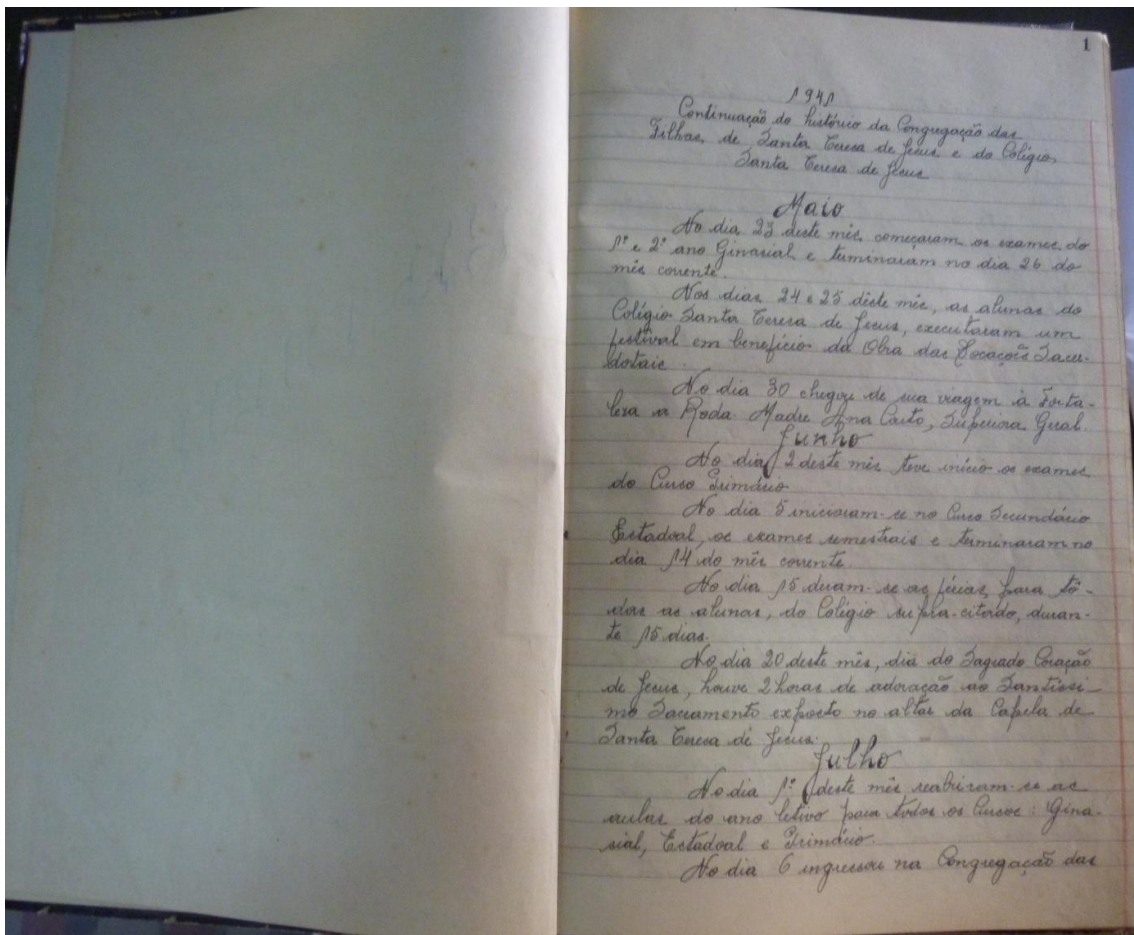 1
1941
Continuação do histórico da Congregação das
Filhas, de Santa Teresa de Jesus, e do Colégio,
Santa Teresa de Jesus
Maio
No dia 23 deste mês, começaram os exames do
1º e 2º ano Ginasial e terminaram no dia 26 do
mês corrente.
Nos dias 24 e 25 dêste mês, as alunas do
Colégio Santa Teresa de Jesus, executaram um
festival em benefício da Obra das Vocações Sacer-
dotais.
No dia 30 chegou de sua viagem à Forta-
lesa a Rvda. Madre Ana Couto, Superiora Geral.
Junho
No dia 2 deste mês teve início os exames
do Curso Primário.
No dia 5 iniciaram-se no Curso Secundário
Estadoal, os exames semestrais e terminaram no
dia 14 do mês corrente.
No dia 15 deram-se as férias para tô-
das as alunas, do Colégio supra-citado, duran-
te 15 dias.
No dia 20 deste mês, dia do Sagrado Coração
de Jesus, houve 2 horas de adoração ao Santíssi-
mo Sacramento exposto no altar da Capela de
Santa Teresa de Jesus.
Julho
No dia 1º deste mês reabriram-se as
aulas do ano letivo para todos os Cursos: Gina-
sial, Estadoal e Primário.
No dia 6 ingressou na Congregação das